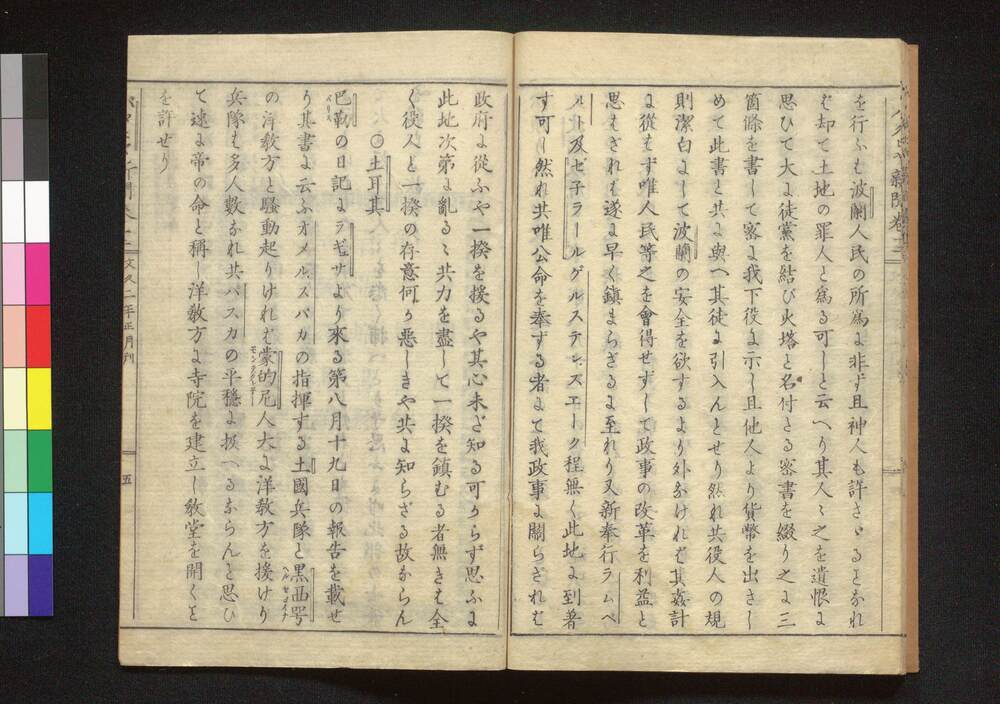 を行ふは波蘭人民の所為に非ず且神人も許さゝるとなれ
ば却て土地の罪人と為る可しと云へり其人々之を遺恨に
思ひて大に徒党を結び火塔と名付たる密書を綴り之に三
箇條を書して密に我下役に示し且他人より貨幣を出さし
めて此書と共に與へ其徒に引入んとせり然れ共役人の規
則潔白にして波蘭の安全を欲するより外なけれは其姦計
に從はず唯人民等之を會得せずして政事の改革を利益と
思はざれは遂に早く鎮まらざるに至れり又新奉行ラムベ
ルト及ゼ子ラールゲルステンズエーク程無く此地に到着
す可し然れ共唯公命を奉ずる者にて我政事に關らざれは
新聞巻十二
政府に從ふや一揆を援るや其心未だ知る可からず思ふに
此地次第に亂るゝ共力を盡して一揆を鎮むる者無きは全
く役人と一揆の存意何か悪しきや共に知らざる故ならん
○土耳其
巴勒の日記にラギュサより來る第八月十九日の報告を載せ
パリス
り其書に云ふオメルズパカの指揮する土國兵隊と黒西哥
ヘルセゴイナ
の洋教方と騒動起りけれは蒙的尼人大に洋教方を援けり
モンタグリニー
兵隊も多人数なれ共パスカの平穏に扱へるならんと思ひ
て速に帝の命と稱し洋教方に寺院を建立し教堂を開くと
を許せり
文久二年正月刊
五